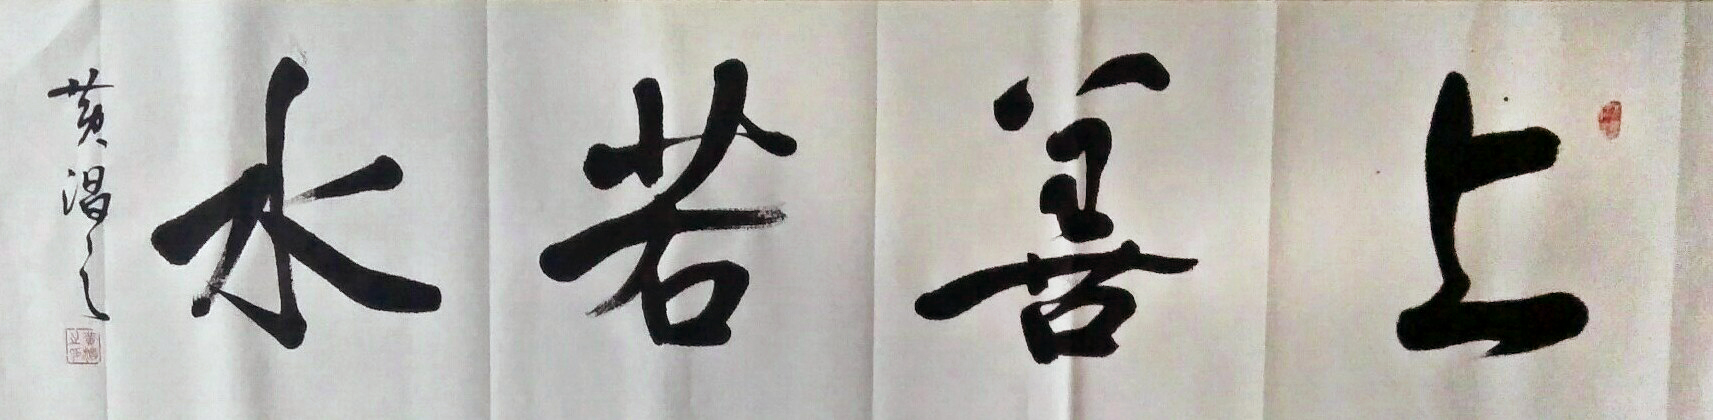 上善若水
黄温之